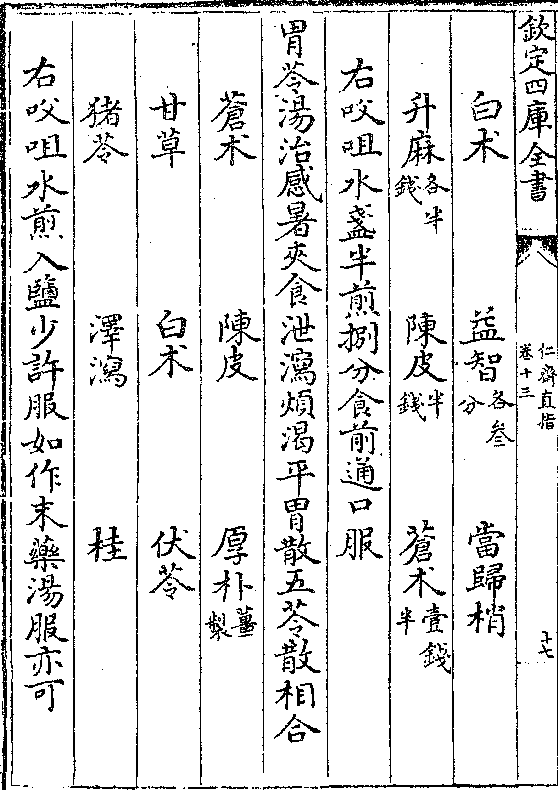 欽定四庫全書
仁齋直指
卷十三
十七
白术 益智各叁分 當歸梢
升麻各半錢 陳皮半錢 蒼术壹錢半
右㕮咀水盞半煎捌分食前通口服
胃苓湯治感暑夾食泄瀉煩渴平胃散五苓散相合
蒼术 陳皮 厚朴薑製
甘草 白术 伏苓
猪苓 澤瀉 桂
右㕮咀水煎入鹽少許服如作末藥湯服亦可